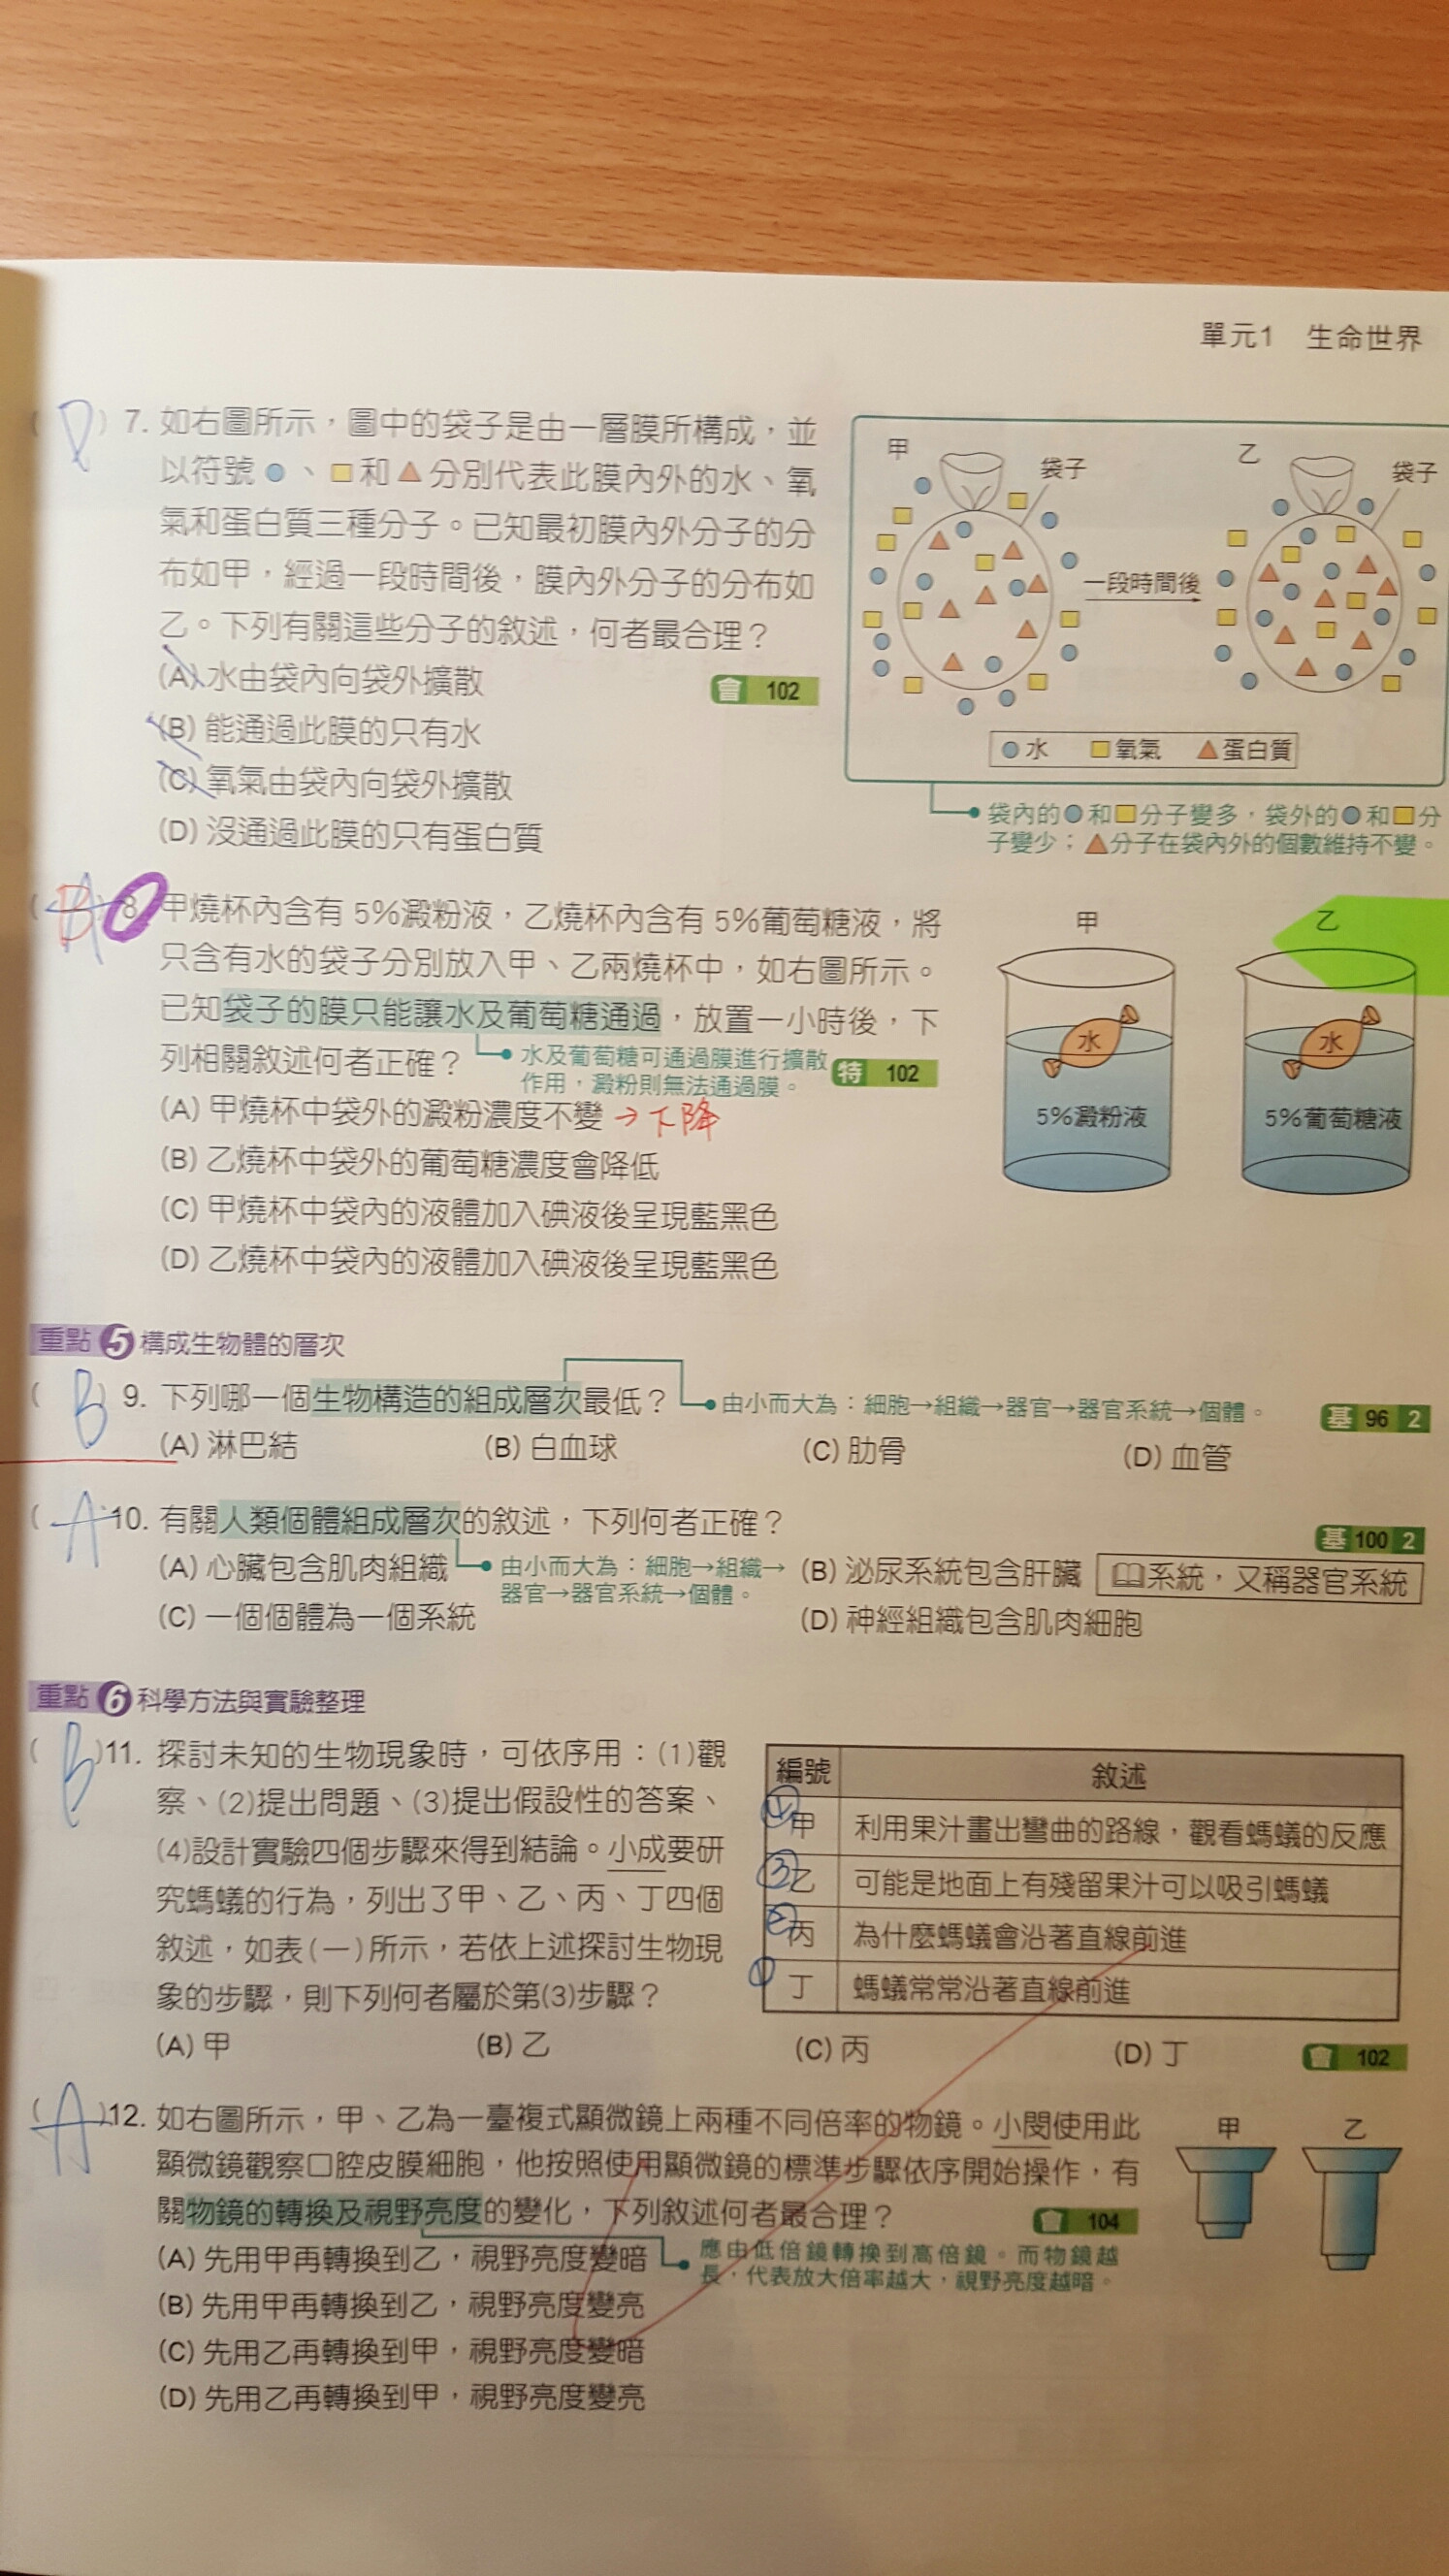 單元1 生命世界
( D ) 7. 如右圖所示，圖中的袋子是由一層膜所構成，並
以符號●、■和▲分別代表此膜內外的水、氧
氣和蛋白質三種分子。已知最初膜內外分子的分
布如甲，經過一段時間後，膜內外分子的分布如
乙。下列有關這些分子的敘述，何者最合理？
(A) 水由袋內向袋外擴散
會 102
(B) 能通過此膜的只有水
(C) 氧氣由袋內向袋外擴散
(D) 沒通過此膜的只有蛋白質
甲 袋子
一段時間後
乙 袋子
●水 ■氧氣 ▲蛋白質
袋內的●和■分子變多，袋外的●和■分
子變少；▲分子在袋內外的個數維持不變。
( A B ) 8. 甲燒杯內含有 5%澱粉液，乙燒杯內含有 5%葡萄糖液，將
只含有水的袋子分別放入甲、乙兩燒杯中，如右圖所示。
已知袋子的膜只能讓水及葡萄糖通過，放置一小時後，下
列相關敘述何者正確？
水及葡萄糖可通過膜進行擴散
作用，澱粉則無法通過膜。
特 102
(A) 甲燒杯中袋外的澱粉濃度不變 →下降
(B) 乙燒杯中袋外的葡萄糖濃度會降低
(C) 甲燒杯中袋內的液體加入碘液後呈現藍黑色
(D) 乙燒杯中袋內的液體加入碘液後呈現藍黑色
甲 乙
水 水
5%澱粉液 5%葡萄糖液
重點 5 構成生物體的層次
( B ) 9. 下列哪一個生物構造的組成層次最低？
由小而大為：細胞→組織→器官→器官系統→個體。
基 96 2
(A) 淋巴結 (B) 白血球 (C) 肋骨 (D) 血管
( A ) 10. 有關人類個體組成層次的敘述，下列何者正確？
基 100 2
(A) 心臟包含肌肉組織 (B) 泌尿系統包含肝臟
由小而大為：細胞→組織→
器官→器官系統→個體。
系統，又稱器官系統
(C) 一個個體為一個系統 (D) 神經組織包含肌肉細胞
重點 6 科學方法與實驗整理
( B ) 11. 探討未知的生物現象時，可依序用：(1)觀
察、(2)提出問題、(3)提出假設性的答案、
(4)設計實驗四個步驟來得到結論。小成要研
究螞蟻的行為，列出了甲、乙、丙、丁四個
敘述，如表(一)所示，若依上述探討生物現
象的步驟，則下列何者屬於第(3)步驟？
編號 敘述
④ 甲 利用果汁畫出彎曲的路線，觀看螞蟻的反應
③ 乙 可能是地面上有殘留果汁可以吸引螞蟻
② 丙 為什麼螞蟻會沿著直線前進
① 丁 螞蟻常常沿著直線前進
(A) 甲 (B) 乙 (C) 丙 (D) 丁
會 102
( A ) 12. 如右圖所示，甲、乙為一臺複式顯微鏡上兩種不同倍率的物鏡。小閔使用此
顯微鏡觀察口腔皮膜細胞，他按照使用顯微鏡的標準步驟依序開始操作，有
關物鏡的轉換及視野亮度的變化，下列敘述何者最合理？
會 104
甲 乙
(A) 先用甲再轉換到乙，視野亮度變暗
應由低倍鏡轉換到高倍鏡。而物鏡越
長，代表放大倍率越大，視野亮度越暗。
(B) 先用甲再轉換到乙，視野亮度變亮
(C) 先用乙再轉換到甲，視野亮度變暗
(D) 先用乙再轉換到甲，視野亮度變亮